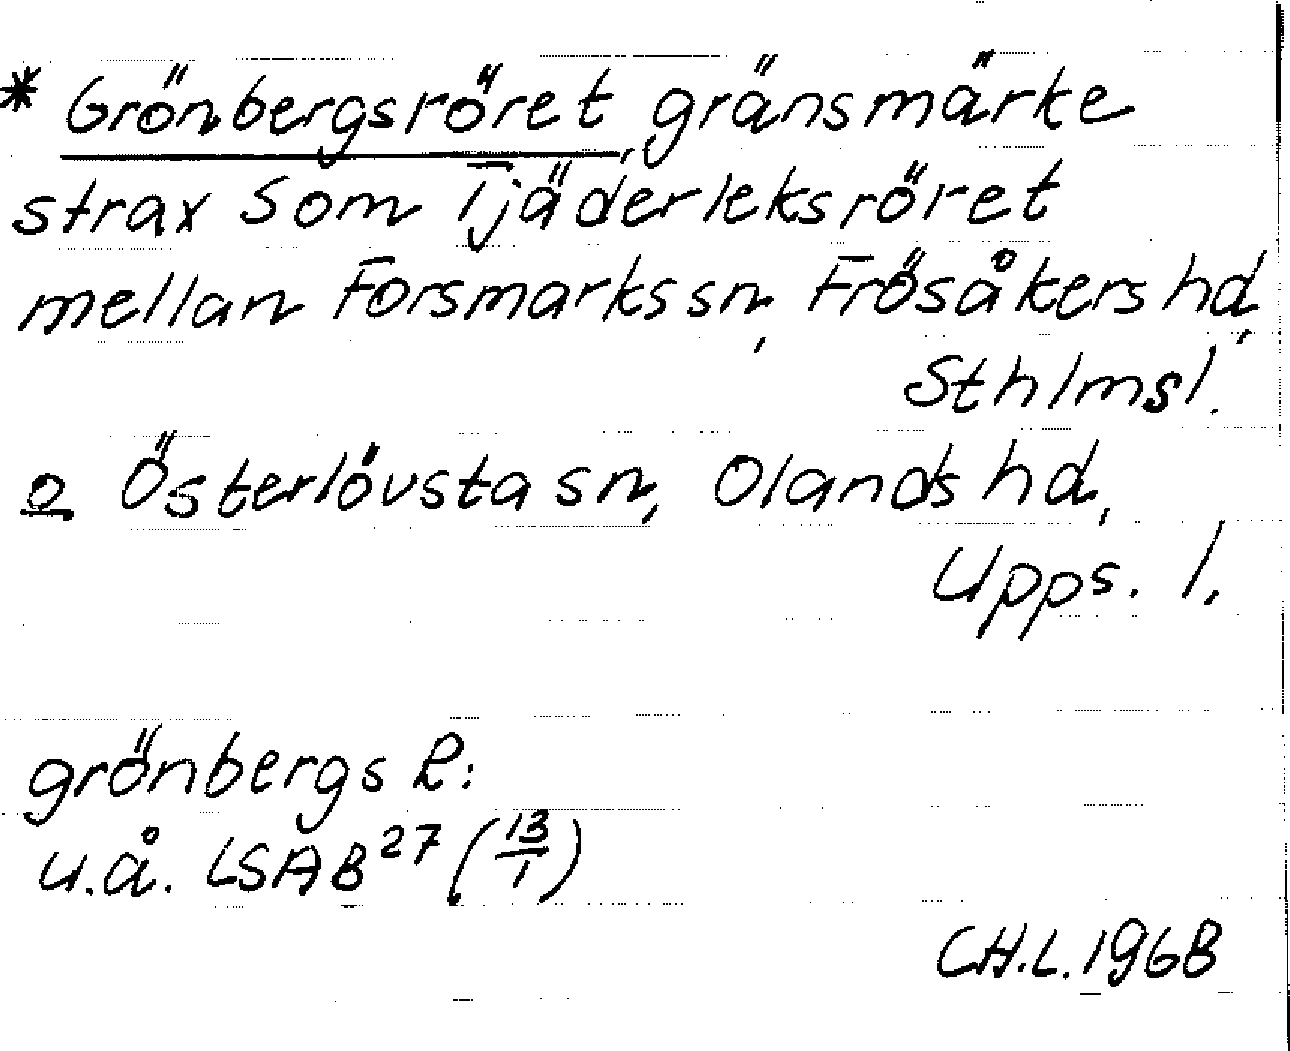 * Grönbergsröret, gränsmärke
strax S om Tjäderleksröret
mellan Forsmarks sn, Frösåkers hd,
Sthlms l.
o Österlövsta sn, Olands hd,
Upps. l.
grönbergs R:
u.å. LSA B 27 (13/1)
CH.L. 1968